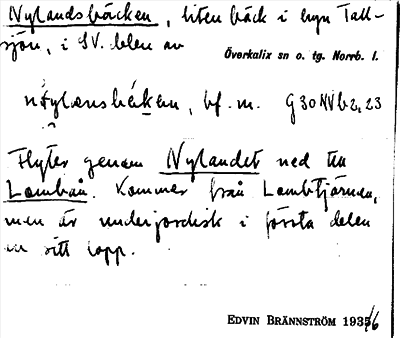 Nylandsbäcken, liten bäck i byn Tall-
sjön, i SV. delen av
Överkalix sn o. tg. Norrb. l.
bf. m. G30NVb2,23
Flyter genom Nylandet ned till
Lambån. Kommer från Lambtjärnen,
men är underjordisk i första delen
av sitt lopp.
EDVIN BRÄNNSTRÖM 1935/6